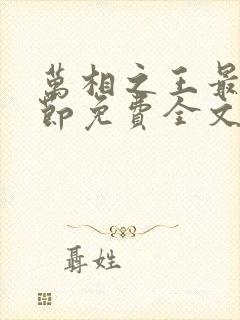 萬相之王最
節免費全文
聶姓